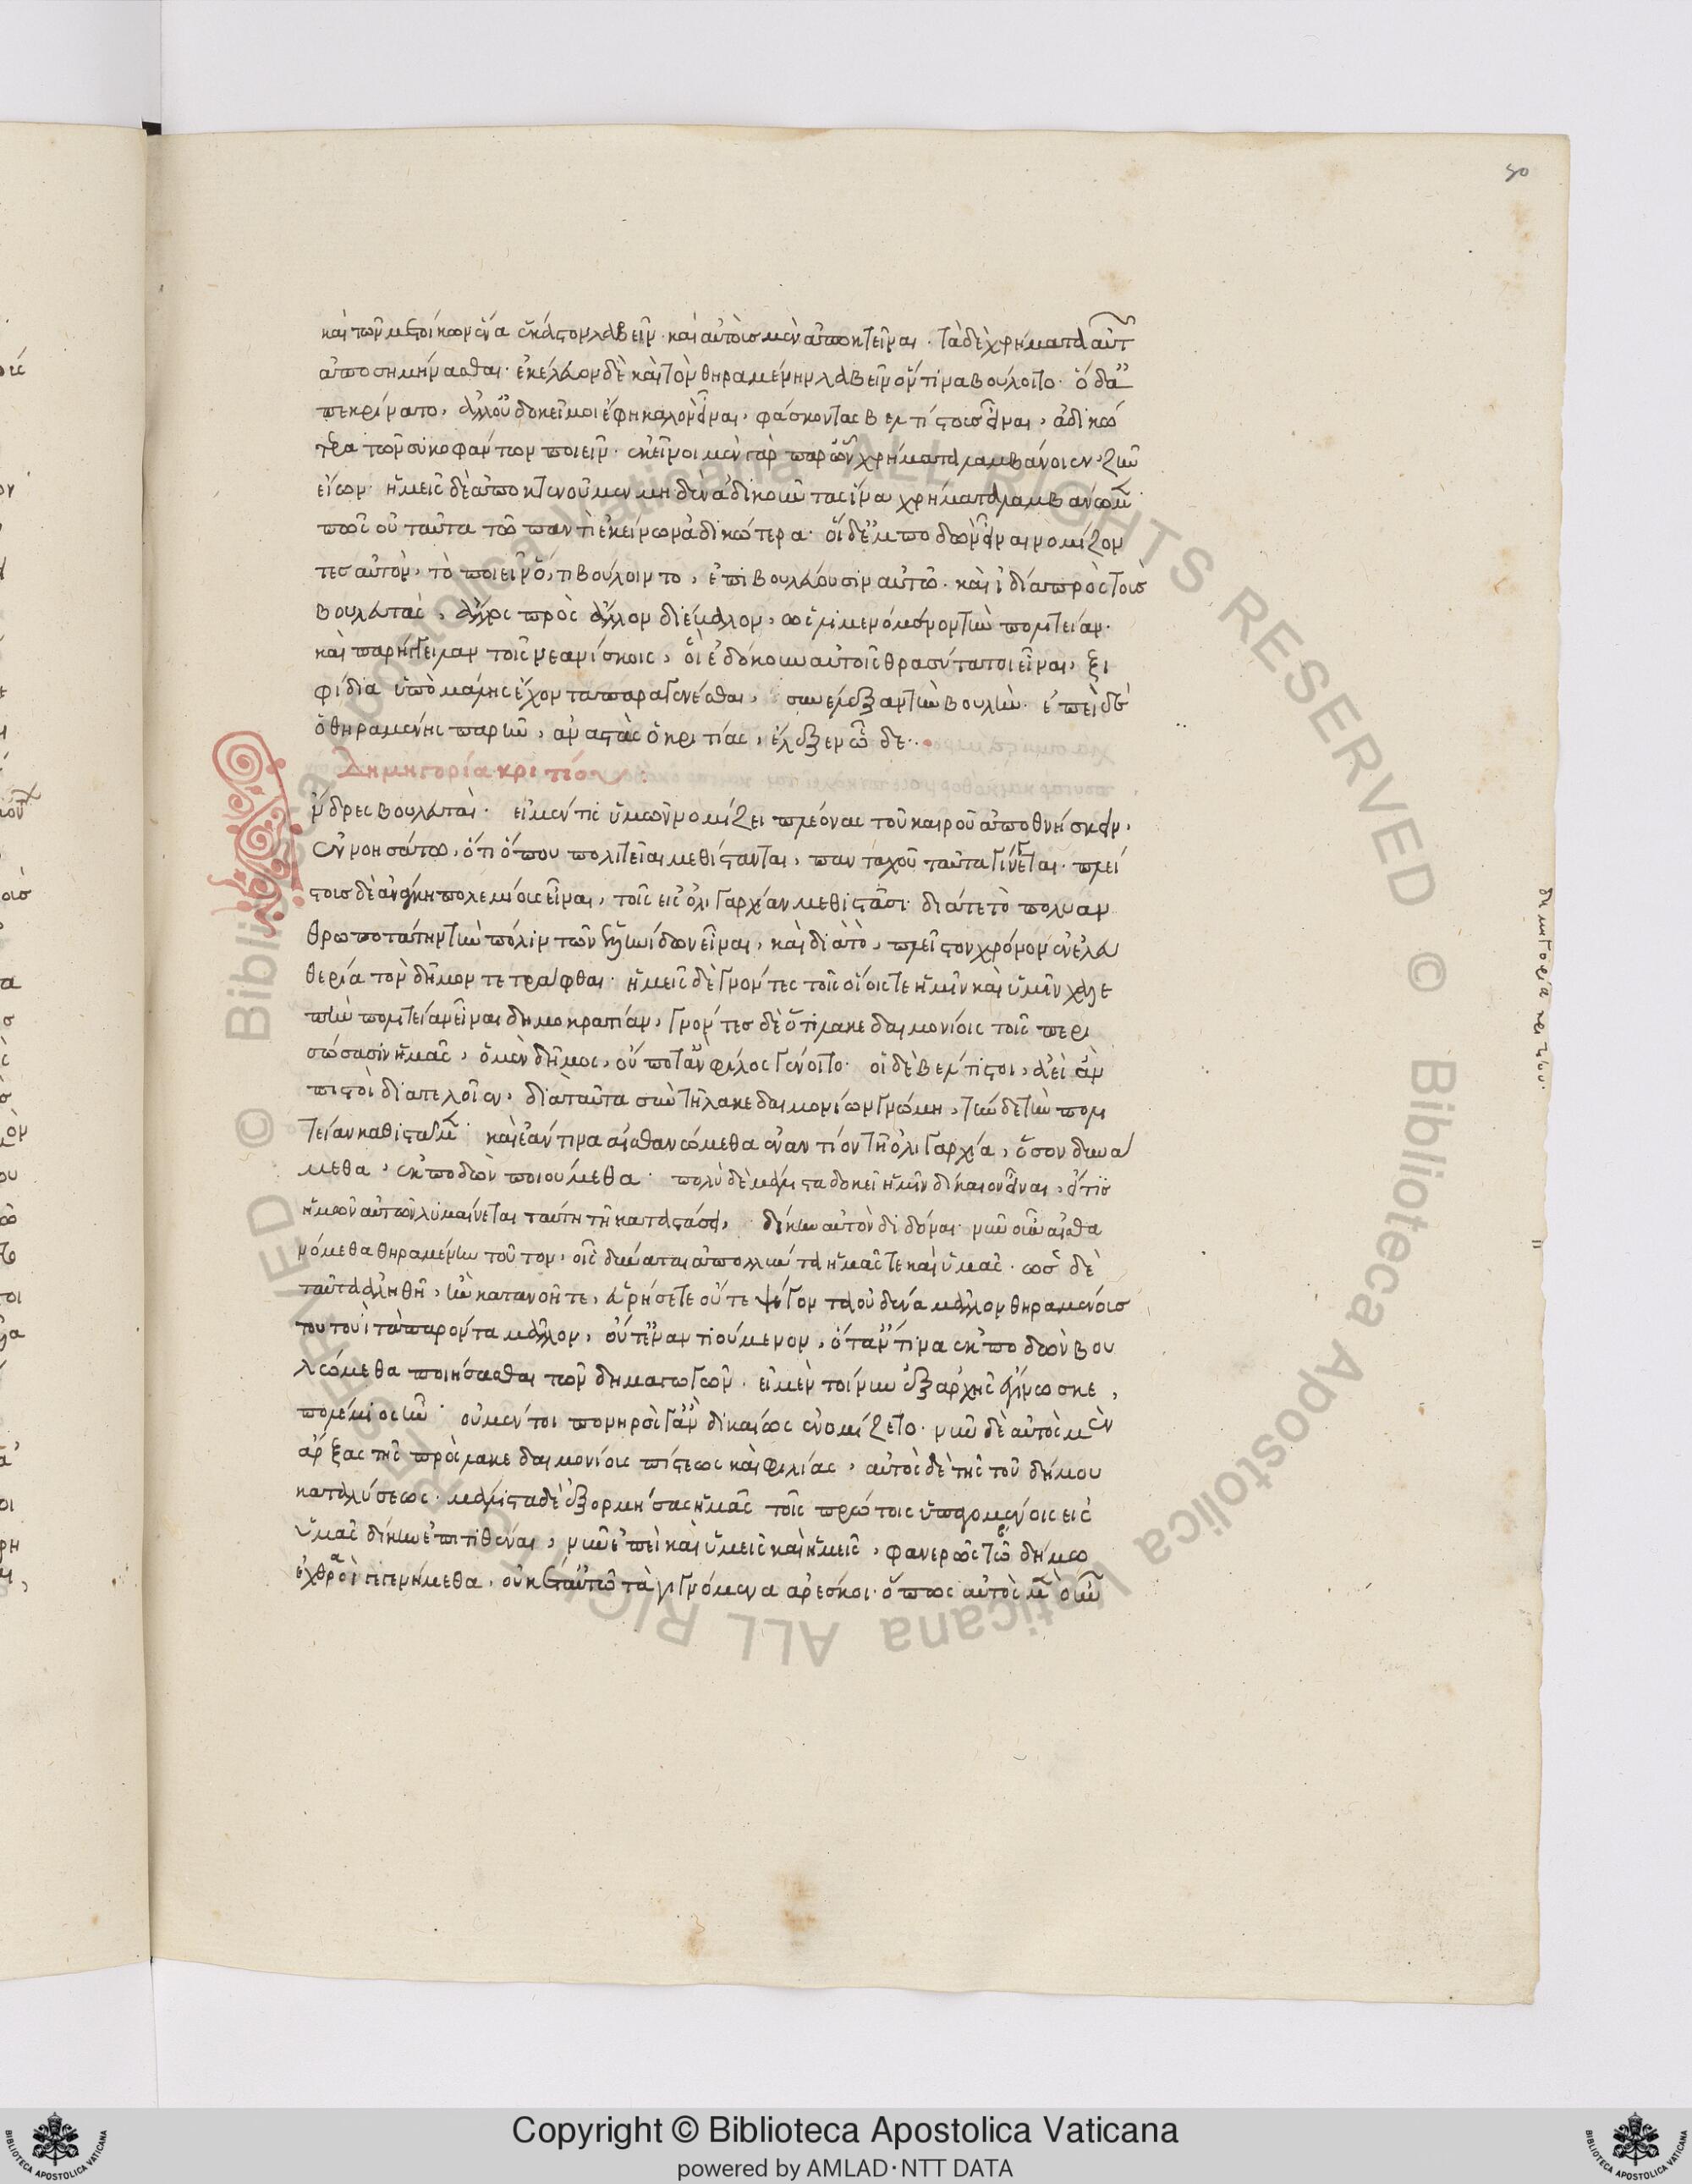 50
καὶ τῶν μετοίκων ἕνα ἕκαστον λαβεῖν· καὶ αὐτοὺς μὲν ἀποκτεῖναι· τὰ δὲ χρήματα αὐτ
ἀποσημήνασθαι· ἐκέλευον δὲ καὶ τὸν θηραμένην λαβεῖν ὅντινα βούλοιτο· ὁ δ' ἀ
πεκρίνατο, ἀλλ' οὐ δοκεῖ μοι ἔφη καλὸν εἶναι, φάσκοντας βελτίστους εἶναι, ἀδικώ
τερα τῶν συκοφαντῶν ποιεῖν· ἐκεῖνοι μὲν γὰρ παρ' ὧν χρήματα λαμβάνοιεν, ζῆν
εἴων· ἡμεῖς δὲ ἀποκτενοῦμεν μηδὲν ἀδικοῦντας ἵνα χρήματα λαμβάνωμεν·
πῶς οὐ ταῦτα τῷ παντὶ ἐκείνων ἀδικώτερα· οἱ δ' ἐμποδὼν εἶναι νομίζον
τες αὐτὸν, τὸ ποιεῖν ὅ,τι βούλοιντο, ἐπιβουλεύουσιν αὐτῷ· καὶ ἰδία πρὸς τοὺς
βουλευτὰς, ἄλλος πρὸς ἄλλον διέβαλλον, ὡς λυμαινόμενον τὴν πολιτείαν·
καὶ παρήγγειλαν τοῖς νεανίσκοις, οἳ ἐδόκουν αὐτοῖς θρασύτατοι εἶναι, ξι
φίδια ὑπὸ μάλης ἔχοντας παραγενέσθαι, συνέλεξαν τὴν βουλήν· ἐπεὶ δὲ
ὁ θηραμένης παρῆν, ἀναστὰς ὁ κριτίας, ἔλεξεν ὧδε·
Δημηγορία κριτίου
ἄνδρες βουλευταὶ· εἰ μέν τις ὑμῶν νομίζει πλέονας τοῦ καιροῦ ἀποθνήσκειν,
ἐννοησάτω, ὅτι ὅπου πολιτεῖαι μεθίστανται, πανταχοῦ ταῦτα γίνεται· πλεί
στους δὲ ἀνάγκη πολεμίους εἶναι, τοῖς εἰς ὀλιγαρχίαν μεθιστᾶσι· διά τε τὸ πολυαν
θρωποτάτην τὴν πόλιν τῶν ἑλληνίδων εἶναι, καὶ διὰ τὸ, πλεῖστον χρόνον ἐν ἐλευ
θερία τὸν δῆμον τετράφθαι· ἡμεῖς δὲ γνόντες τοῖς οἵοις τε ἡμῖν καὶ ὑμῖν χαλε
πὴν πολιτείαν εἶναι δημοκρατίαν, γνόντες δὲ ὅτι λακεδαιμονίοις τοῖς περι
σώσασιν ἡμᾶς, ὁ μὲν δῆμος, οὔποτ' ἂν φίλος γένοιτο· οἱ δὲ βέλτιστοι, ἀεὶ ἂν
πιστοὶ διατελοῖεν, διὰ ταῦτα σὺν τῇ λακεδαιμονίων γνώμη, τήνδε τὴν πολι
τείαν καθίσταμεν· καὶ ἐάν τινα αἰσθανώμεθα ἐναντίον τῇ ὀλιγαρχία, ὅσον δυνά
μεθα, ἐκποδὼν ποιούμεθα· πολὺ δὲ μάλιστα δοκεῖ ἡμῖν δίκαιον εἶναι, εἴ τις
ἡμῶν αὐτῶν λυμαίνεται ταύτη τῇ καταστάσει, δίκην αὐτὸν διδόναι· νῦν οὖν αἰσθα
νόμεθα θηραμένην τοῦτον, οἷς δύναται ἀπολλύντα ἡμᾶς τε καὶ ὑμᾶς· ὡς δὲ
ταῦτα ἀληθῆ, ἢν κατανοῆτε, εὑρήσετε οὔτε ψέγοντα οὐδένα μᾶλλον θηραμένους
τουτουῒ τὰ παρόντα μᾶλλον, οὔτ' ἐναντιούμενον, ὅταν τινα ἐκποδὼν βου
λώμεθα ποιήσασθαι τῶν δημαγωγῶν· εἰ μὲν τοίνυν ἐξ ἀρχῆς ἐγίνωσκε,
πολέμιος ἦν· οὐ μέντοι πονηρός γ' ἂν δικαίως ἐνομίζετο· νῦν δὲ αὐτὸς μὲν
ἄρξας τῆς πρὸς λακεδαιμονίους πίστεως καὶ φιλίας, αὐτὸς δὲ τῆς τοῦ δήμου
καταλύσεως· μάλιστα δὲ ἐξορμήσας ἡμᾶς τοῖς πρώτοις ὑπαγομένοις εἰς
ὑμᾶς δίκην ἐπιτιθέναι, νῦν ἐπεὶ καὶ ὑμεῖς καὶ ἡμεῖς, φανερῶς τῷ δήμω
ἐχθροὶ γεγενήμεθα, οὐκέτ' αὐτῷ τὰ γιγνόμενα ἀρέσκει· ὅπως αὐτὸς μὲν
δημηγορία κριτίου